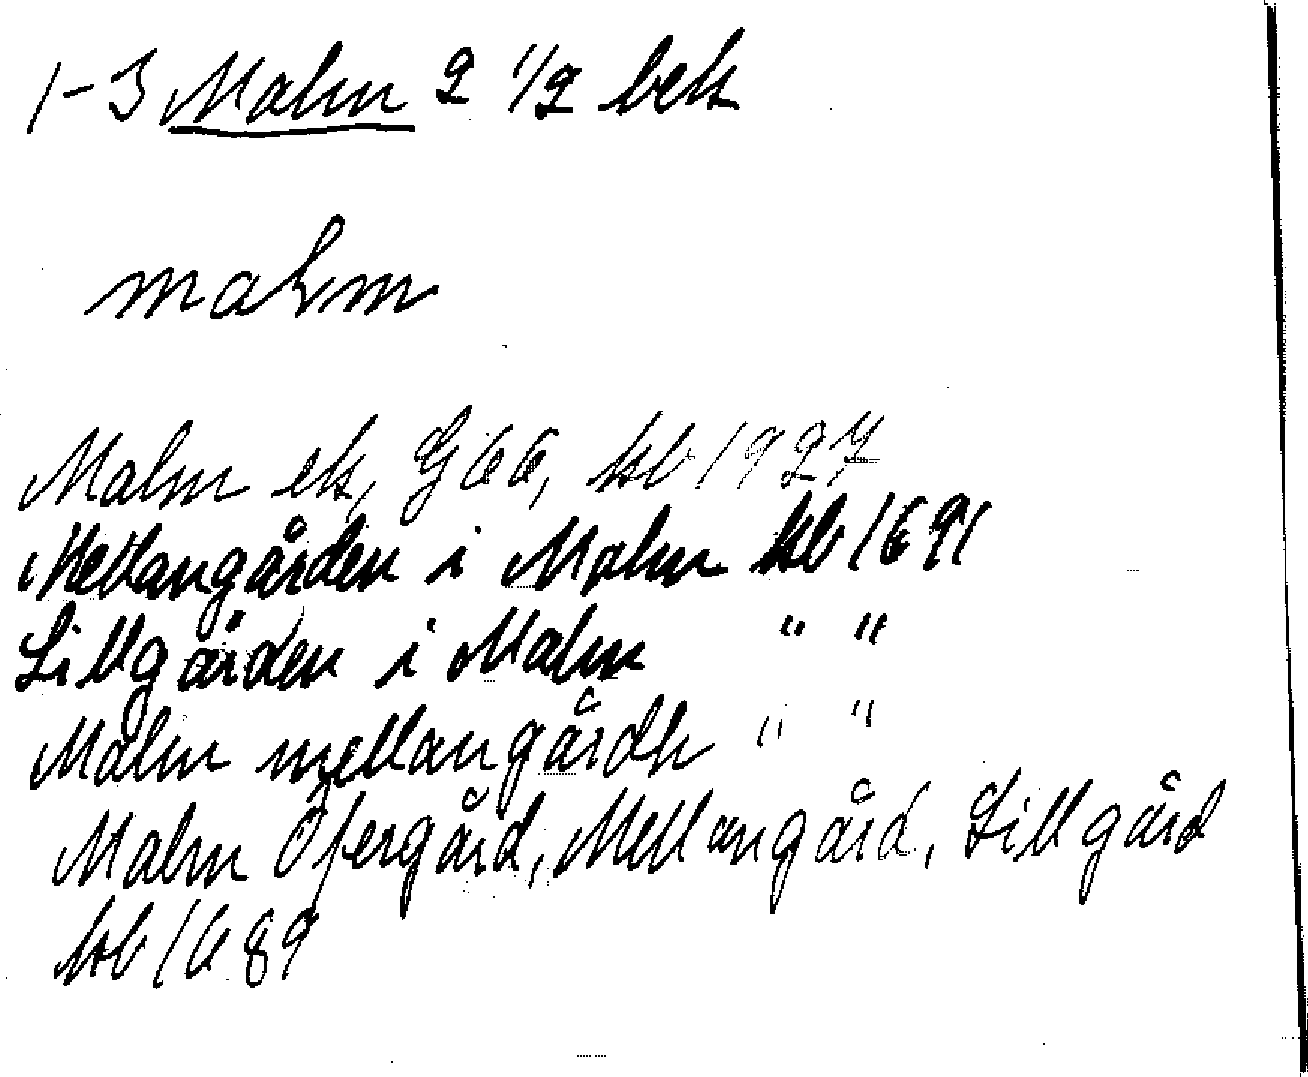 1-3 Malm 2 1/2 bek
malm
Malm ek, G66, kb 1927
Mellangården i Malm kb 1691
Lillgården i Malm " "
Malm mellangårdh " "
Malm Öfvergård, Mellangård, Lillgård
kb 1689